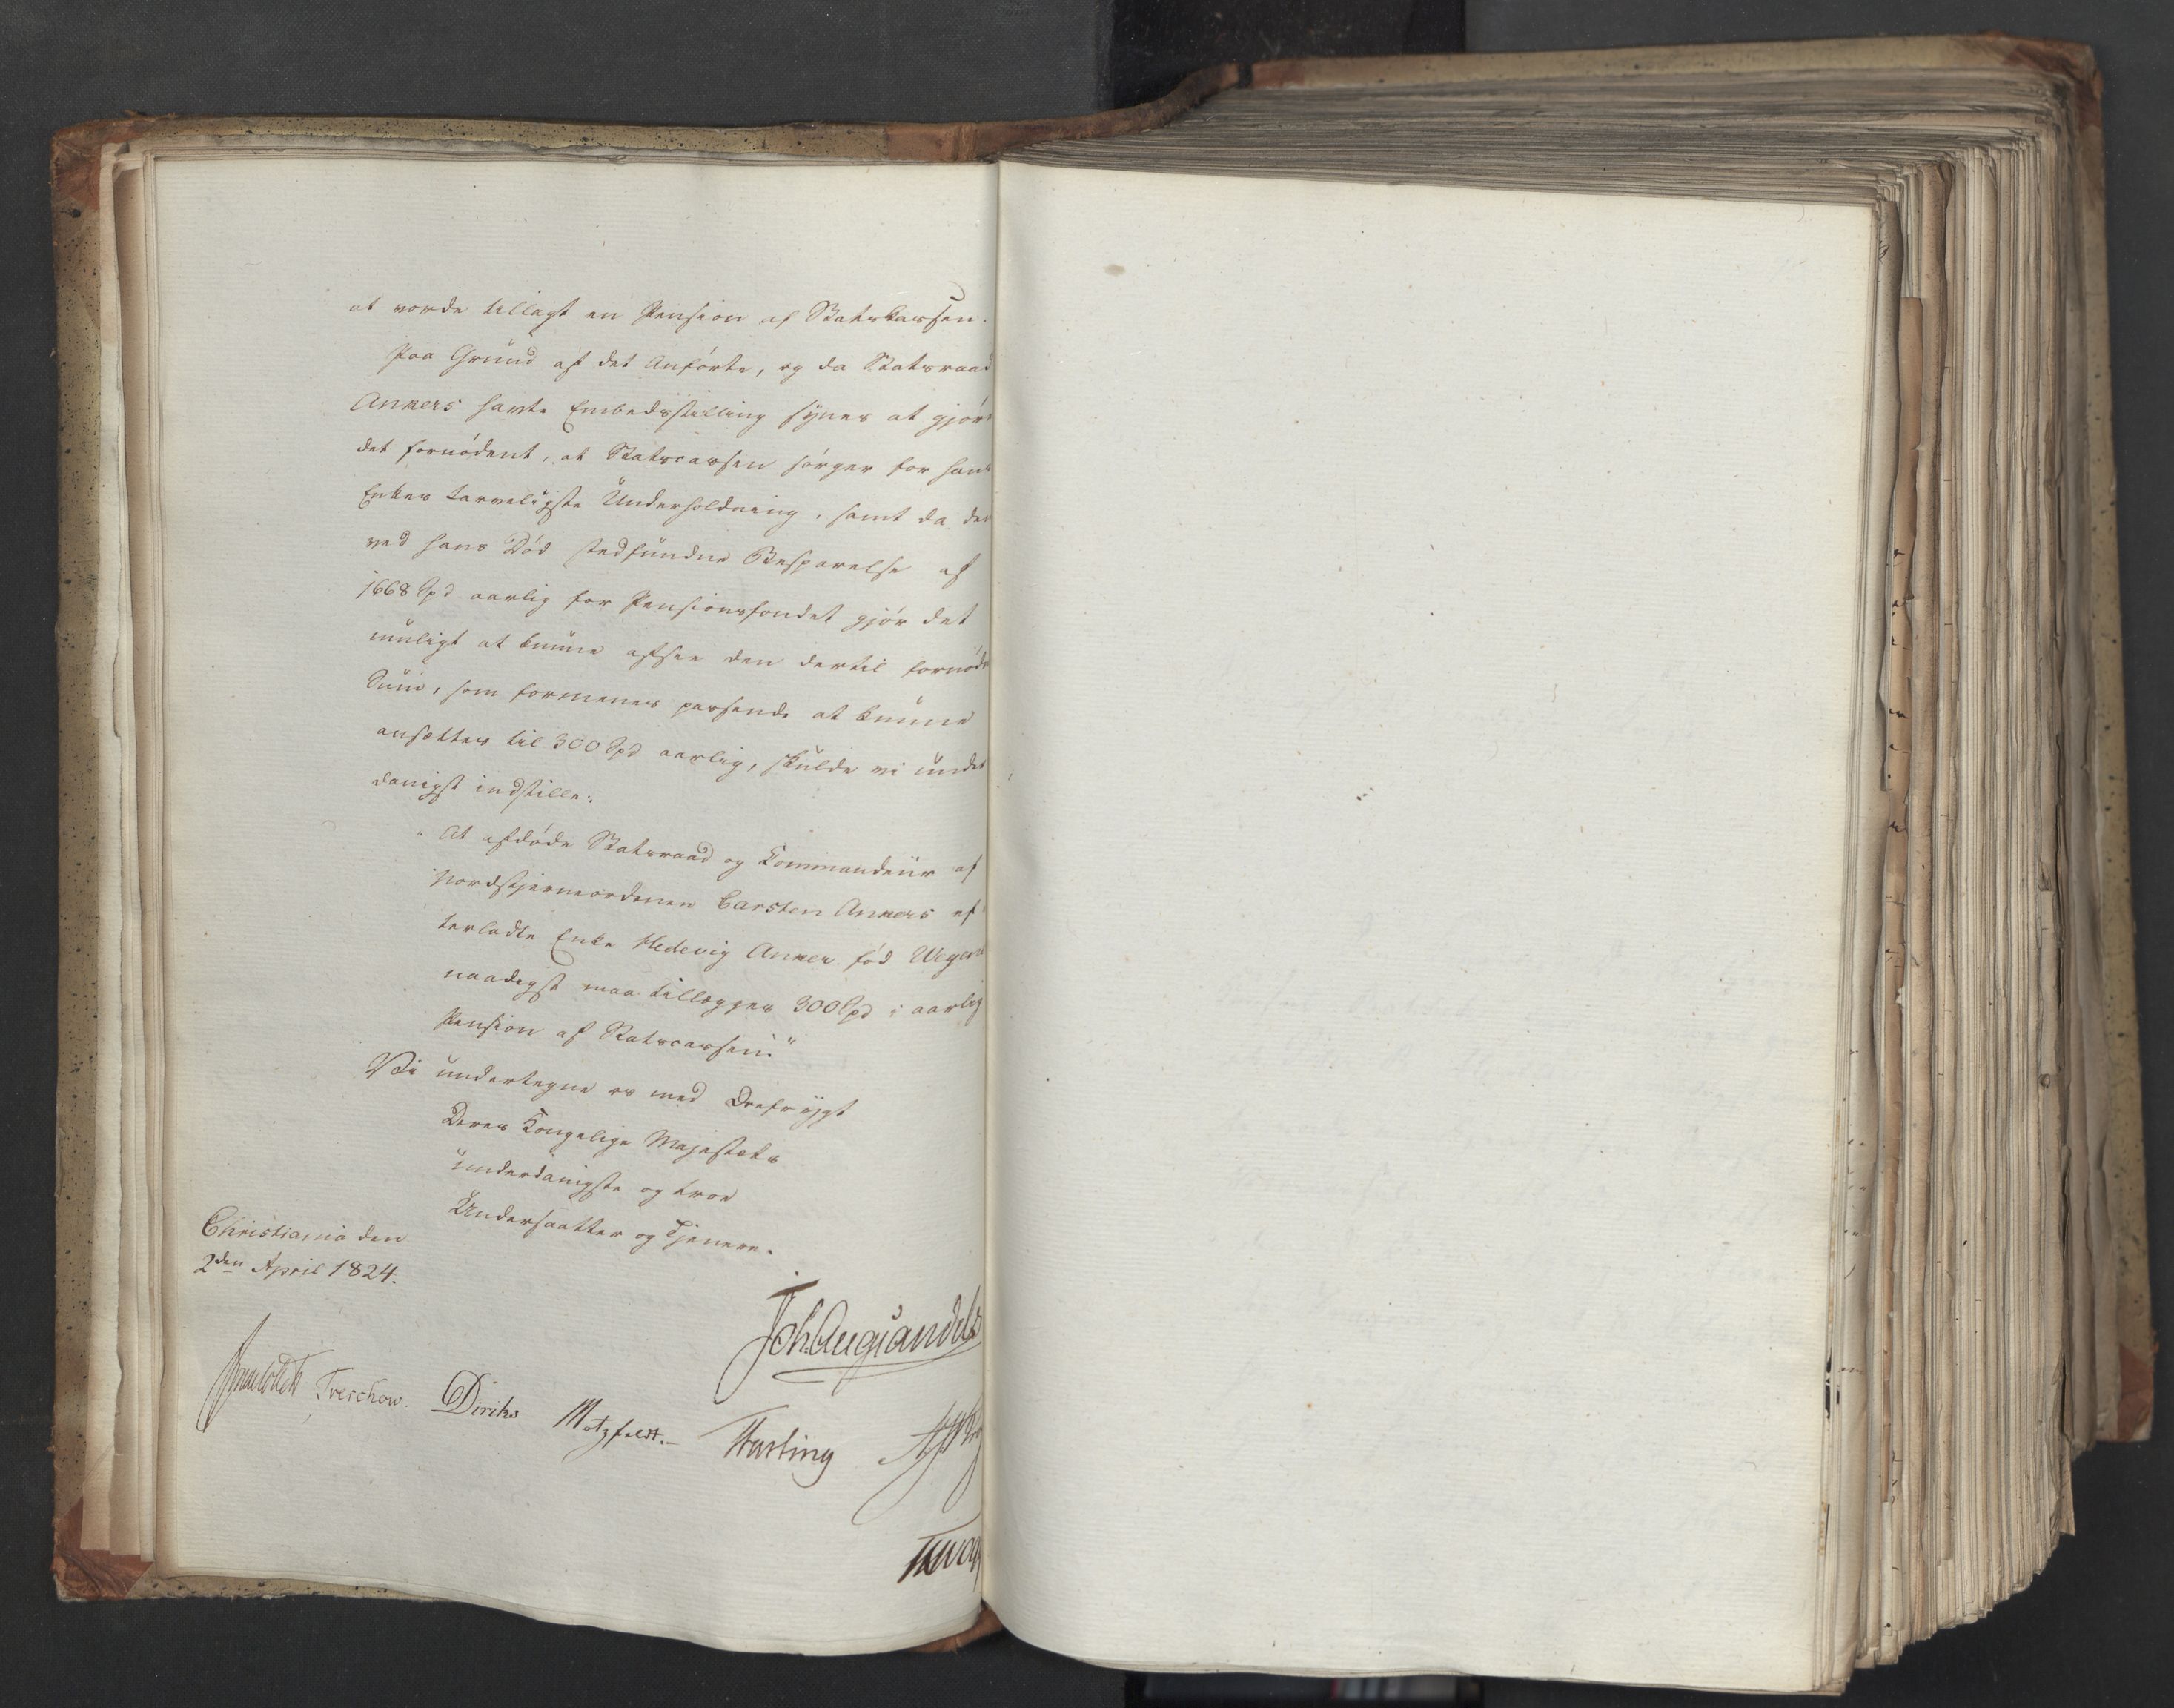 at vorde tillagt en Pension af Statskassen.
Paa Grund af det Anførte, og da Statsraad
Ankers havte Embedsstilling synes at gjøre
det fornødent, at Statscassen sørger for hans
Enkes tarveligste Underholdning, samt da den
ved hans Død stedfundne Besparelse af
1668 Spd aarlig for Pensionsfondet gjør det
muligt at kunne afsee den dertil fornødne
Sum, som formenes passende at kunne
ansættes til 300 Spd aarlig, skulde vi under
danigst indstille:
"At afdøde Statsraad og Commandeur af
Nordstjerneordenen Carsten Ankers ef
terladte Enke Hedevig Anker fød Wegener
naadigst maa tillægges 300 Spd i aarlig
Pension af Statscassen."
Vi undertegne os med Ærefrygt
Deres Kongelige Majestæts
underdanigste og troe
Undersaatter og Tjenere.
Christiania den
2den April 1824.
Joh: Aug: Sandels
Treschow. Diriks Motzfeldt. Fasting